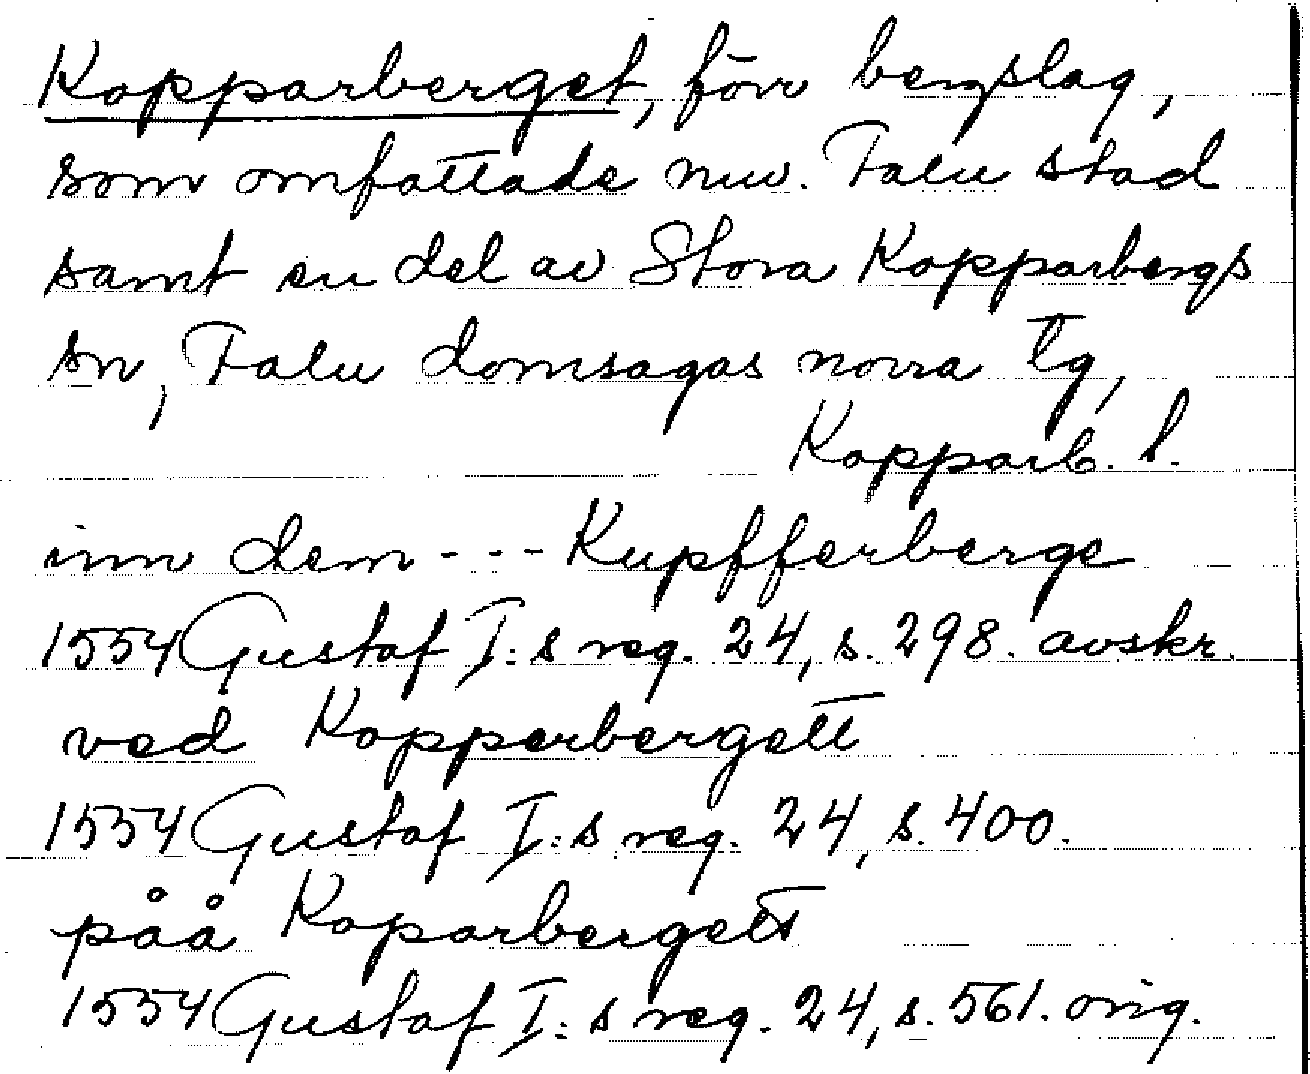 Kopparberget, förr bergslag,
som omfattade nuv. Falu stad
samt en del av Stora Kopparbergs
sn, Falu domsagas norra tg,
Kopparb. l.
inn dem - - - Kupfferberge
1554 Gustaf I:s reg. 24, s. 298. avskr.
ved Kopperbergett
1554 Gustaf I:s reg. 24, s. 400.
påå Koparbergett
1554 Gustaf I:s reg. 24, s. 561. orig.